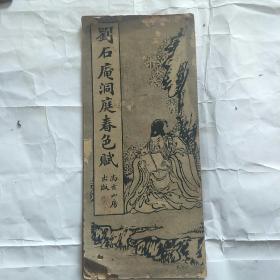 劉石庵洞庭春色賦
尚古山房
出版